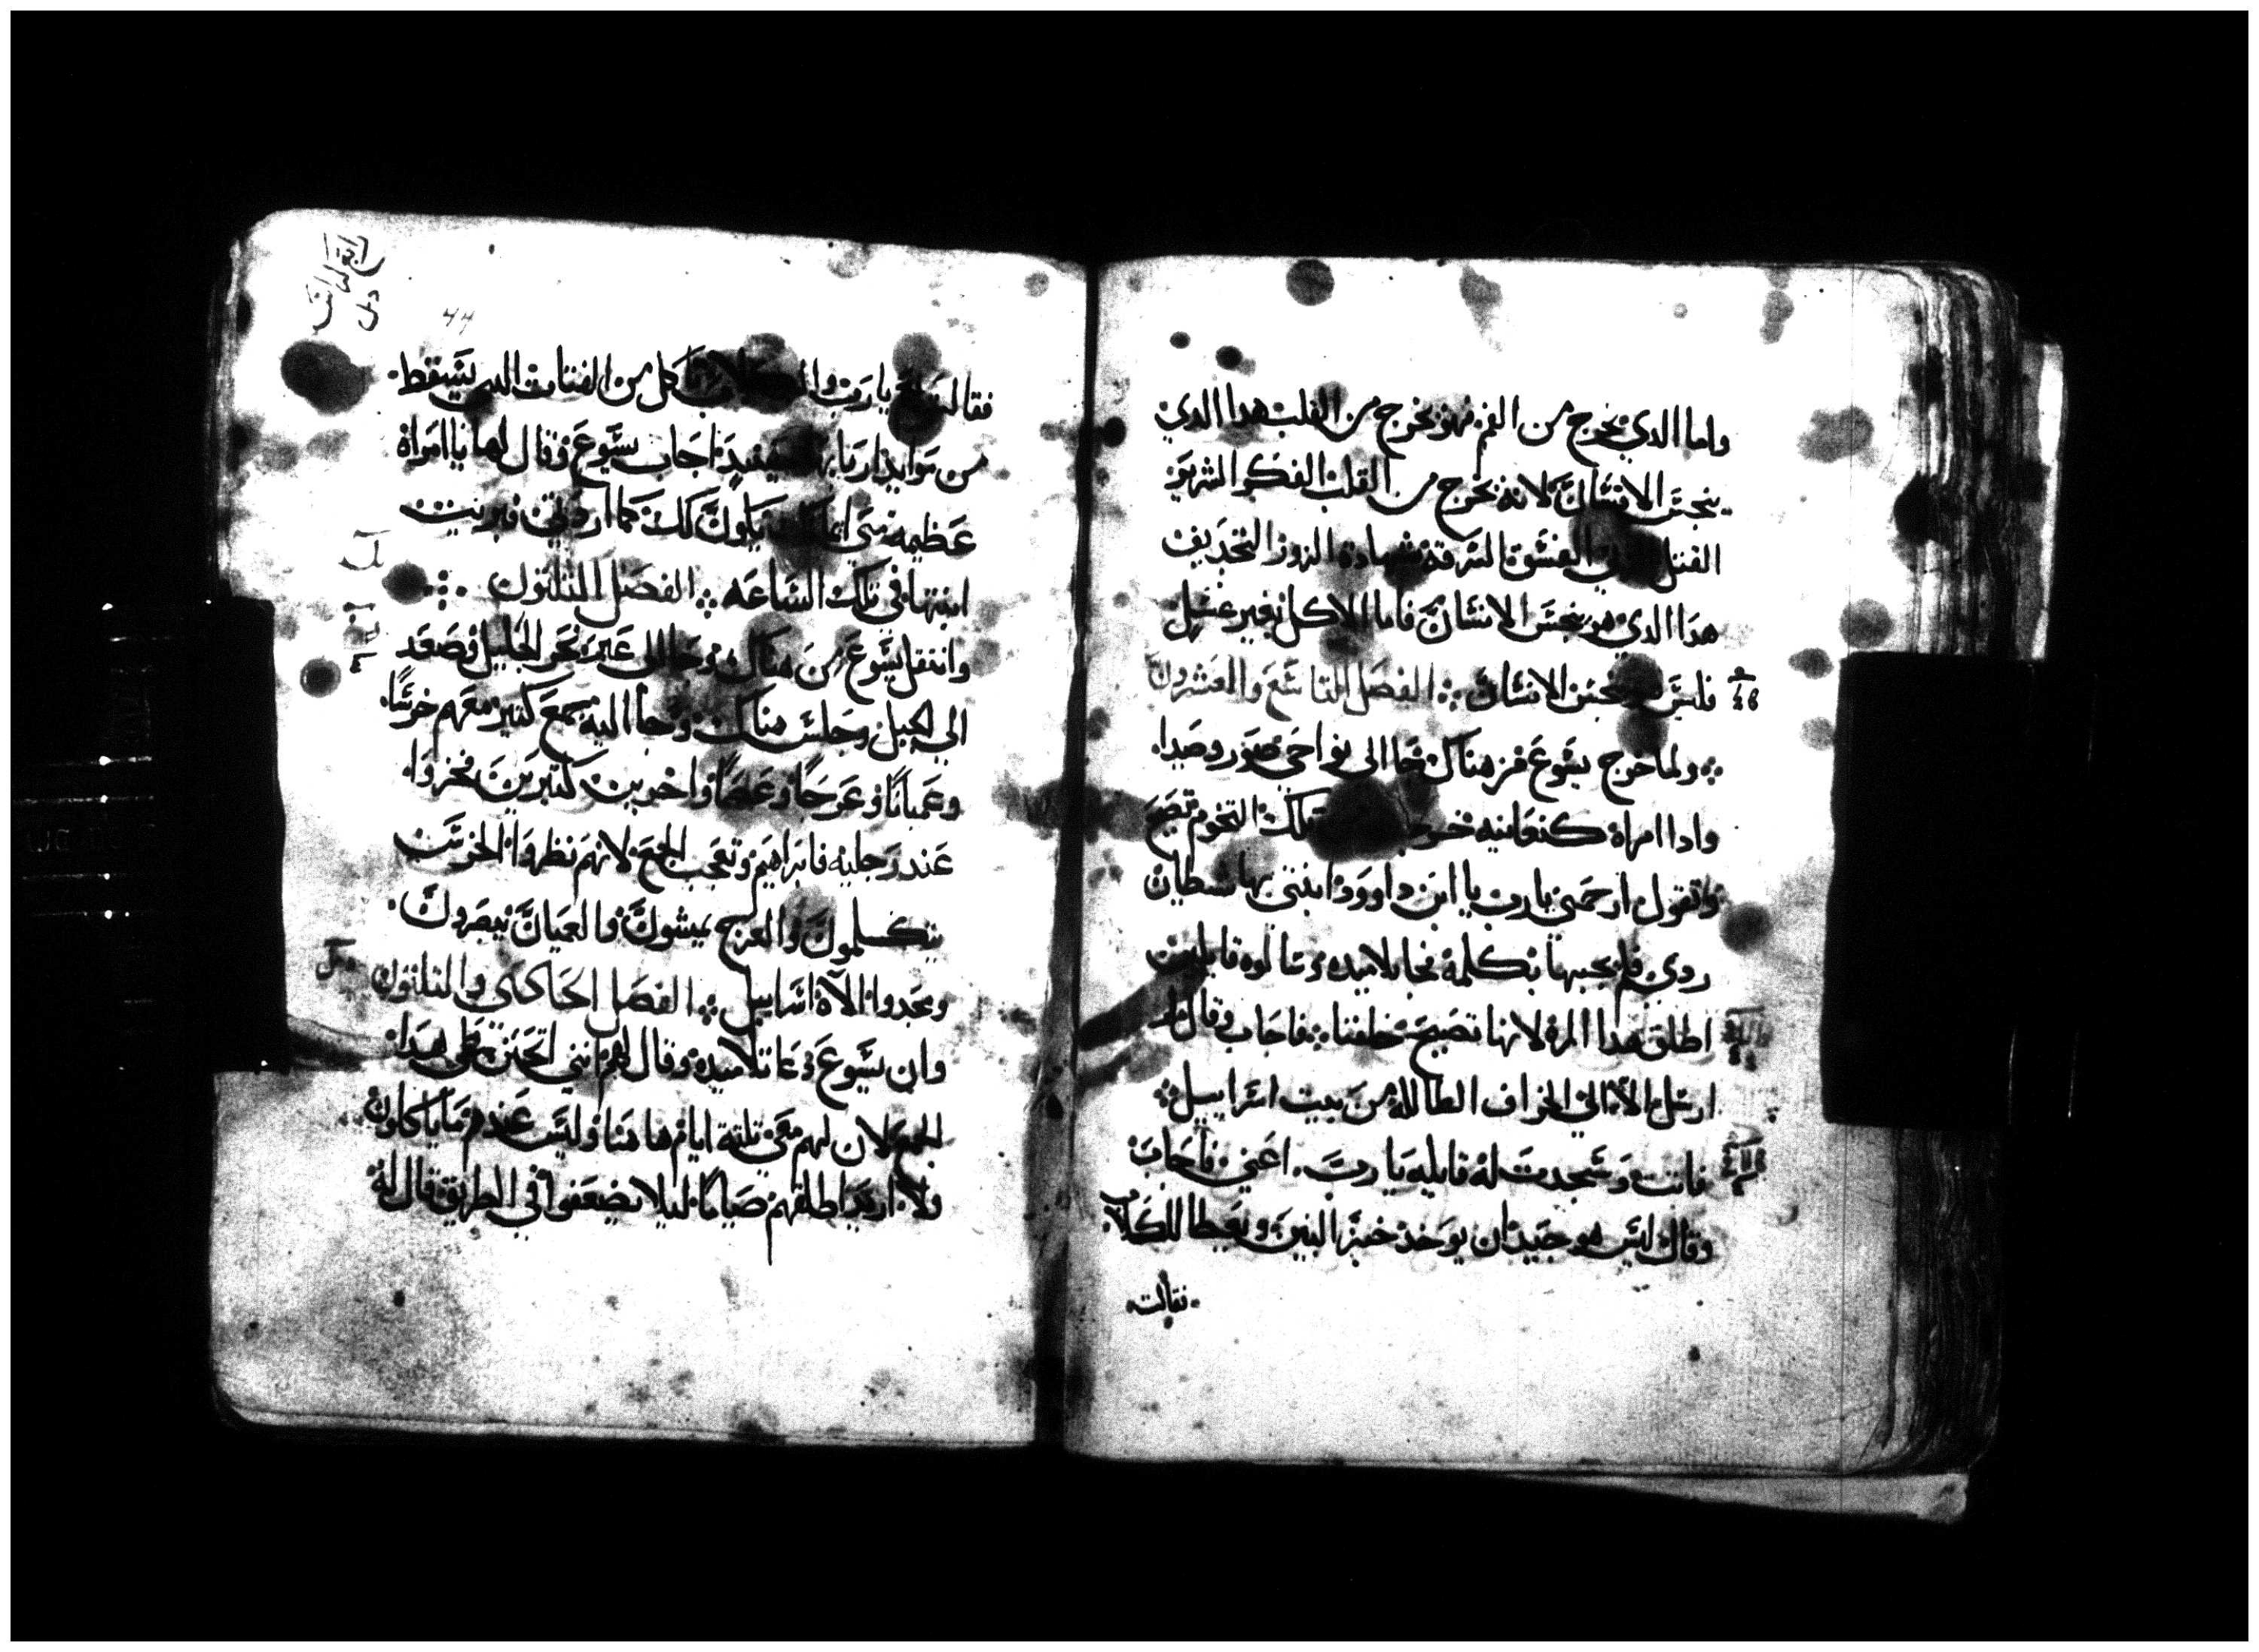 واما الدي يخرج من الفم فهو يخرج من القلب هدا الدي
ينجس الانسان لانه يخرج من القلب الفكر الشرير
القتل الفسق السرقة شهادة الزور التجديف
هدا الدي هو ينجس الانسان فاما الاكل بغير غسل
فليس ينجس الانسان الفصل التاسع والعشرون
ولما خرج يسوع من هناك جا الى نواحي صور وصيدا
وادا امراة كنعانيه خرجت تلك التخوم تصيح
وتقول ارحمني يارب يا ابن داوود ابنتي بها شيطان
ردي فلم يجبها بكلمة فجا تلاميده وسالوه قايلين
اطلق هدا المره لانها تصيح خلفنا فاجاب وقال لم
ارسل الا الي الخراف الضالة من بيت اسراييل
فاتت وسجدت له قايليه يا رب اعني فاجاب
وقال ليس هو جيد ان يوخد خبز البنين ويعطا للكلاب
فقالت
فقالت نعم يارب والكلاب تاكل من الفتات الدي يسقط
من موايد اربابها حينيد اجاب يسوع وقال لها يا امراة
عظيمه هي امانتك يكون لك كما اردتي فبريت
ابنتها في تلك الساعه الفصل التلتون
وانتقل يسوع من هناك وجا الى عبر بحر الجليل وصعد
الي الجبل وجلس هناك وجا اليه جمع كتير معهم خرسا
وعميانا وعرجا وعصما واخرين كتيرين فخروا
عند رجليه فابراهيم وتعجب الجمع لانهم نظروا الخرس
يتكلمون والعرج يمشون والعميان يبصرون
ومجدوا الاه اسراييل الفصل الحادي والتلتون
وان يسوع دعا تلاميده وقال لهم انني اتحنن على هدا
الجمع لان لهم معي تلتة ايام هاهنا وليس عندهم ما ياكلون
ولا اريد اطلقهم صياما ليلا يضعفوا في الطريق قال له